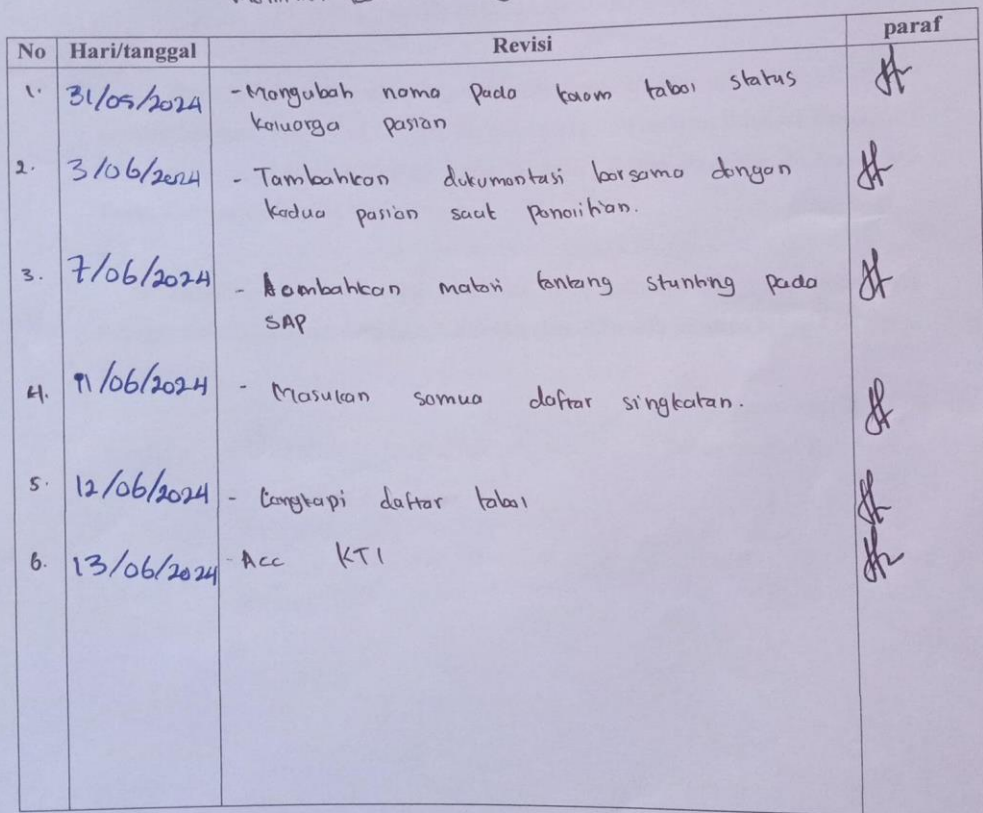 No Hari/tanggal Revisi paraf
1. 31/05/2024 - Mengubah nama pada kolom tabel status
keluarga pasien
2. 3/06/2024 - Tambahkan dokumentasi bersama dengan
kedua pasien saat penelitian.
3. 7/06/2024 - Tambahkan materi tentang stunting pada
SAP
4. 11/06/2024 - Masukan semua daftar singkatan.
5. 12/06/2024 - Lengkapi daftar tabel
6. 13/06/2024 - Acc KTI